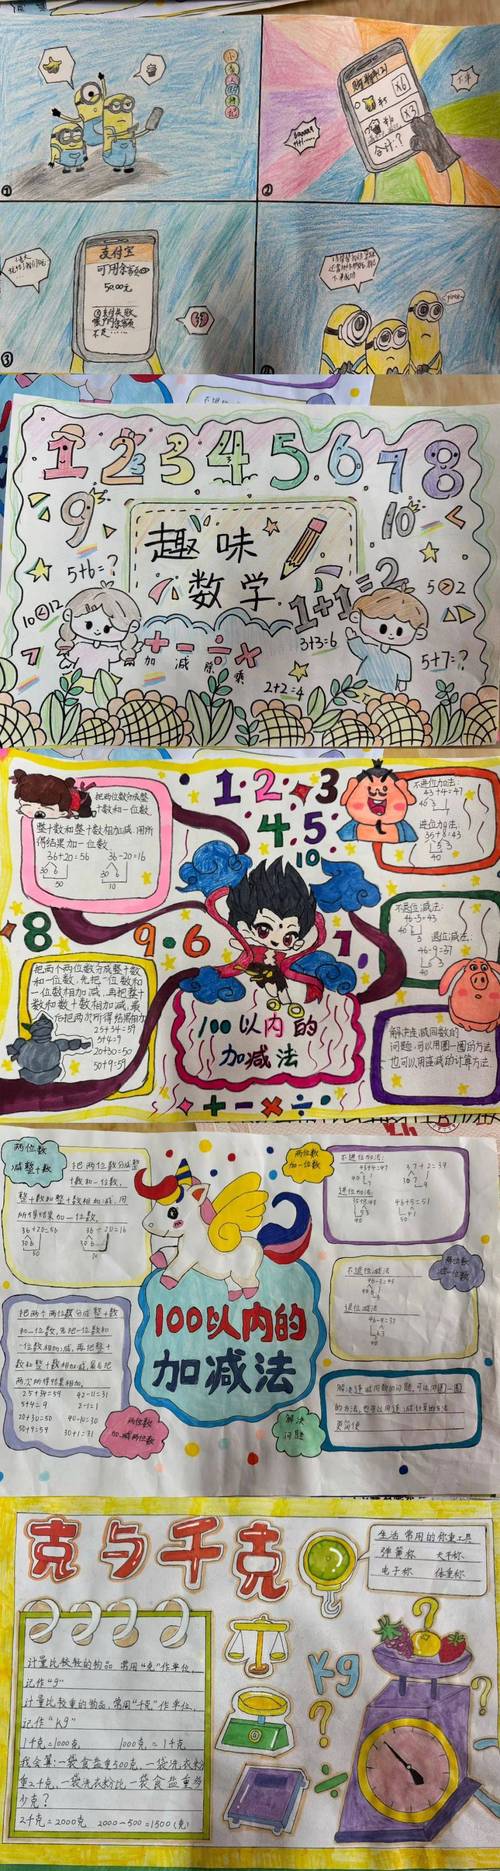 ①
②
购物车(2)
X6
X3
合计：?
③
支付宝
可用余额
50.00元
1 2 3 4 5 6 7 8
9
10
趣味
数学
5+6=?
10<12
1+1=2
3+3=6
5>2
5+7=?
2+2=4
加 减 除 乘
1·2·3
4·5
10
8
9·6
7
把两位数分成整
十数和一位数,
整十数和整十数相加减,用所
得结果加一位数.
36+20=56 36-20=16
30 6 30 6
50 10
不进位加法:
43+4=47
进位加法:
35+8=43
5 3
40
不退位减法:
46-3=43
退位减法:
46-9=37
把两个两位数分成整十数
和一位数,先把一位数和
一位数相加减,再把整十
数和整十数相加减,最
后把两次所得结果相加.
25+34=59
5+4=9
20+30=50
50+9=59
100以内的
加减法
解决连减同数的
问题,可以用圈一圈的方法
也可以用连减的计算方法
+ - × ÷
两位数
减整十数
把两位数分成整
十数和一位数,
整十数和整十数相加减,用
所得结果加一位数.
36+20=56 36-20=16
30 6 30 6
50 10
两位数
加一位数
不进位加法:
43+4=47 37+2=39
进位加法:
35+8=43 46+5=51
不退位减法
46-3=43
退位减法
100以内的
加减法
把两个两位数分成整十数
和一位数,先把一位数和
一位数相加减,再把整十
数和整十数相加减,最后把
两次所得结果相加.
25+34=59 42-11=31
5+4=9 2-1=1
20+30=50 40-10=30
50+9=59 30+1=31
两位数
加减两位数
解决
问题
解决连减同数的问题,可以用圈一圈
的方法,也可以用连减计算的方法
更简便
克与千克
生活常用的称重工具
弹簧称 天平称
电子称 体重称
计量比较轻的物品,常用“克”作单位,
记作“g”
计量比较重的物品,常用“千克”作单位,
记作“Kg”
1千克=1000克 1000克=1千克
我会算:一袋食盐重500克,一袋洗衣粉
重2千克,一袋洗衣粉比一袋食盐重多
少克?
2千克=2000克 2000-500=1500(克)
Kg
?
?
÷